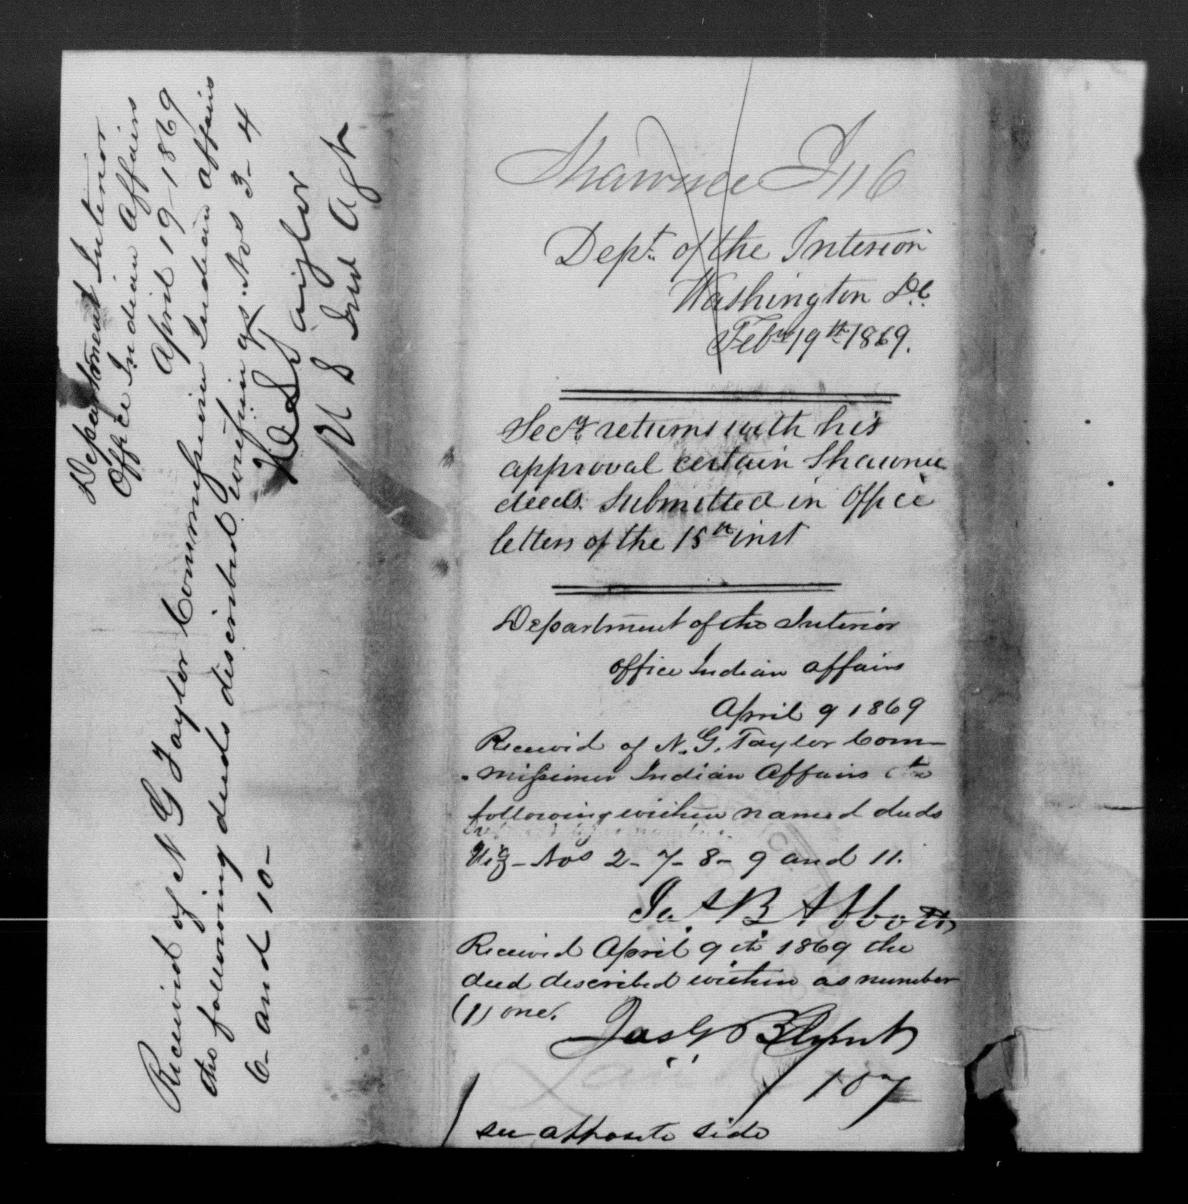 Shawnee I 116
Dept. of the Interior
Washington D.C.
Feby 19th 1869.
Secy. returns with his
approval certain Shawnee
deeds submitted in Office
letters of the 15th inst
Department of the Interior
office Indian affairs
April 9 1869
Received of N. G. Taylor Com-
missioner Indian Affairs the
following within named deeds
Viz - Nos 2 - 7 - 8 - 9 and 11.
Jas. B Abbott
Received April 9th 1869 the
deed described within as number
(1) one.
Jas G Blunt
107
see opposite side
Department Interior
Office Indian Affairs
April 19 - 1869
Received of N G Taylor Commissioner Indian Affairs
the following deeds discribed within as Nos 3 - 4
6 - and 10 -
Taylor
U S Ind Agt